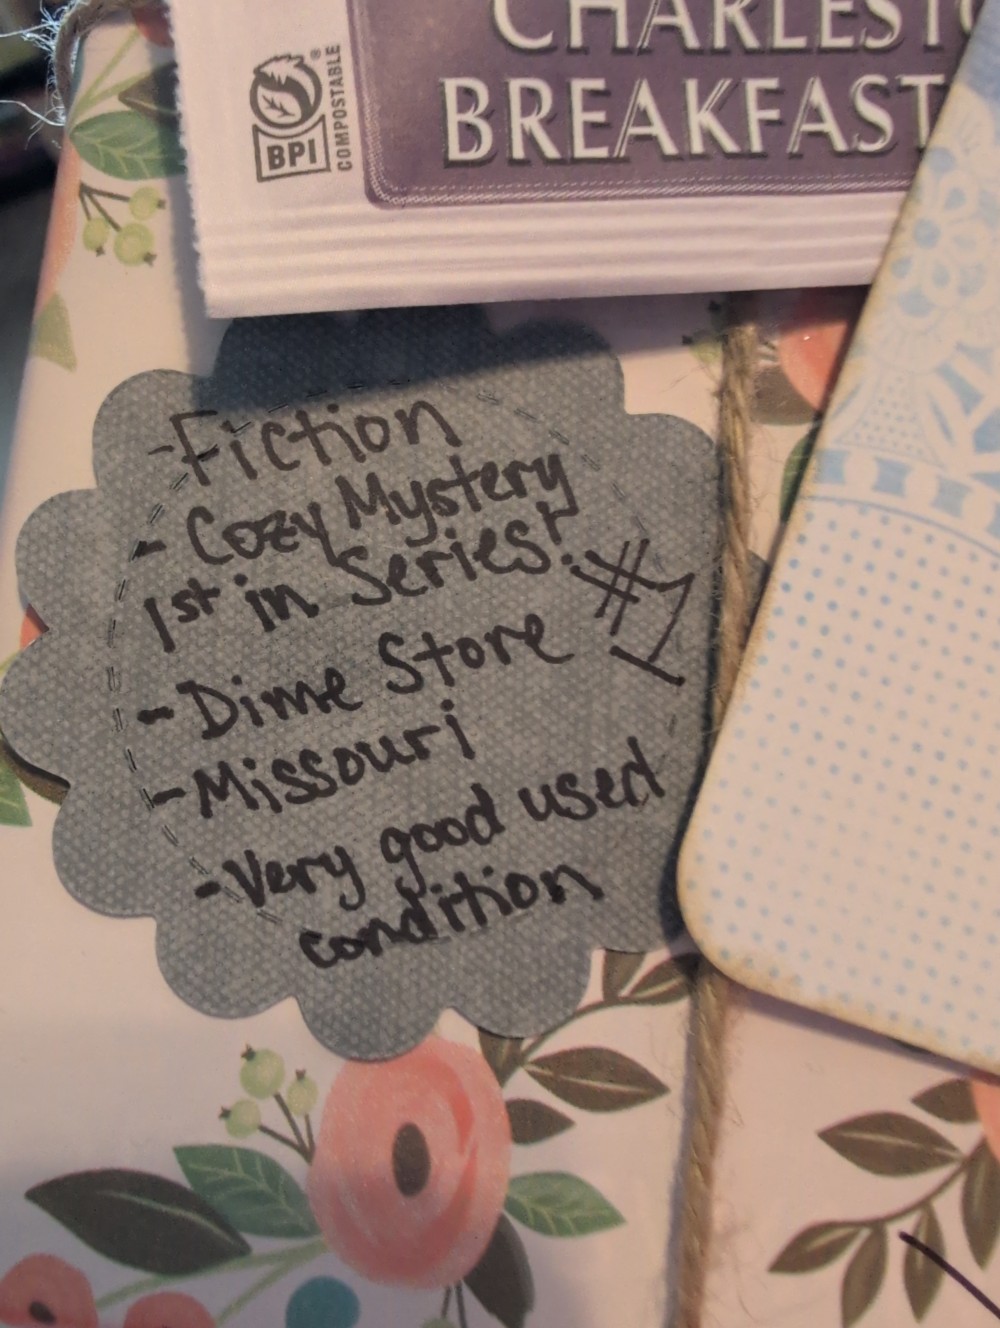 CHARLESTO
BREAKFAST
BPI
®
COMPOSTABLE
-Fiction
- Cozy Mystery
1st in Series!
#1
- Dime Store
- Missouri
- Very good used
condition